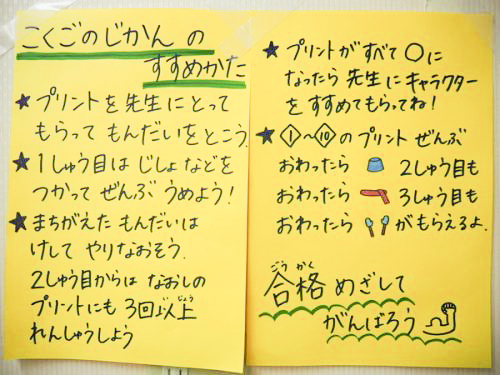 こくごのじかんの
すすめかた
★プリントを先生にとって
もらってもんだいをとこう.
★1しゅう目はじしょなどを
つかってぜんぶうめよう!
★まちがえたもんだいは
けしてやりなおそう.
2しゅう目からはなおしの
プリントにも3回以上
れんしゅうしよう
★プリントがすべて○に
なったら先生にキャラクター
をすすめてもらってね!
★①~⑩のプリントぜんぶ
おわったら 2しゅう目も
おわったら 3しゅう目も
おわったら がもらえるよ.
合格めざして
がんばろう